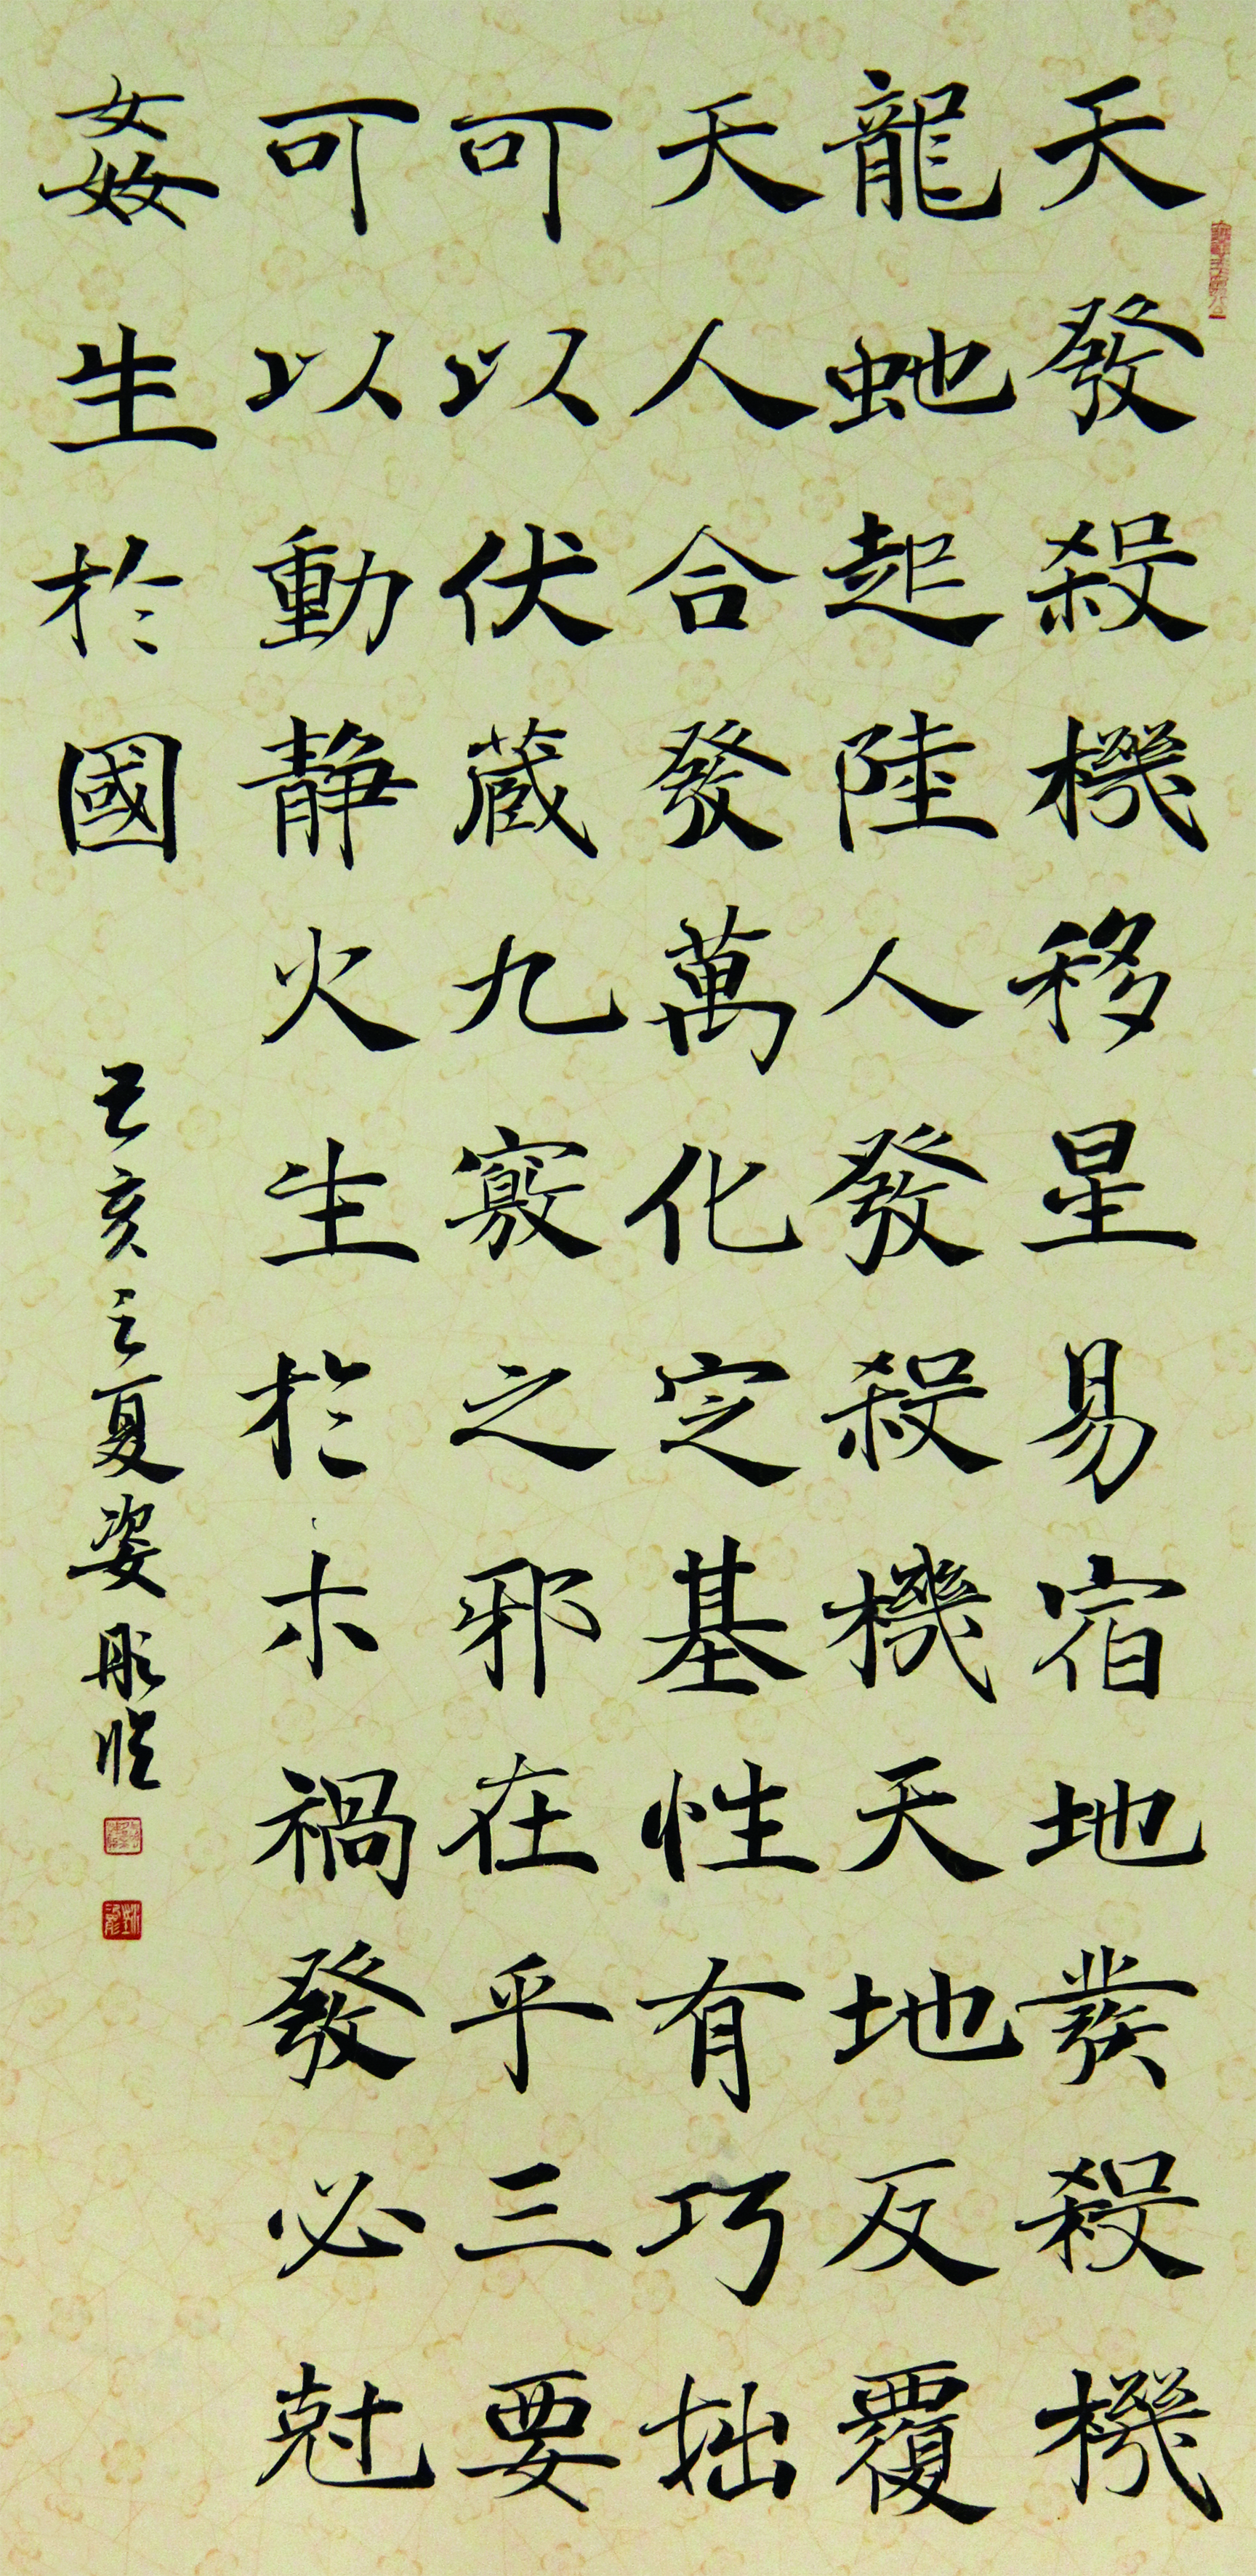 天發殺機移星易宿地發殺機
龍虵起陸人發殺機天地反覆
天人合發萬化定基性有巧拙
可以伏藏九竅之邪在乎三要
可以動靜火生於木禍發必尅
姦生於國
己亥之夏姿彤臨